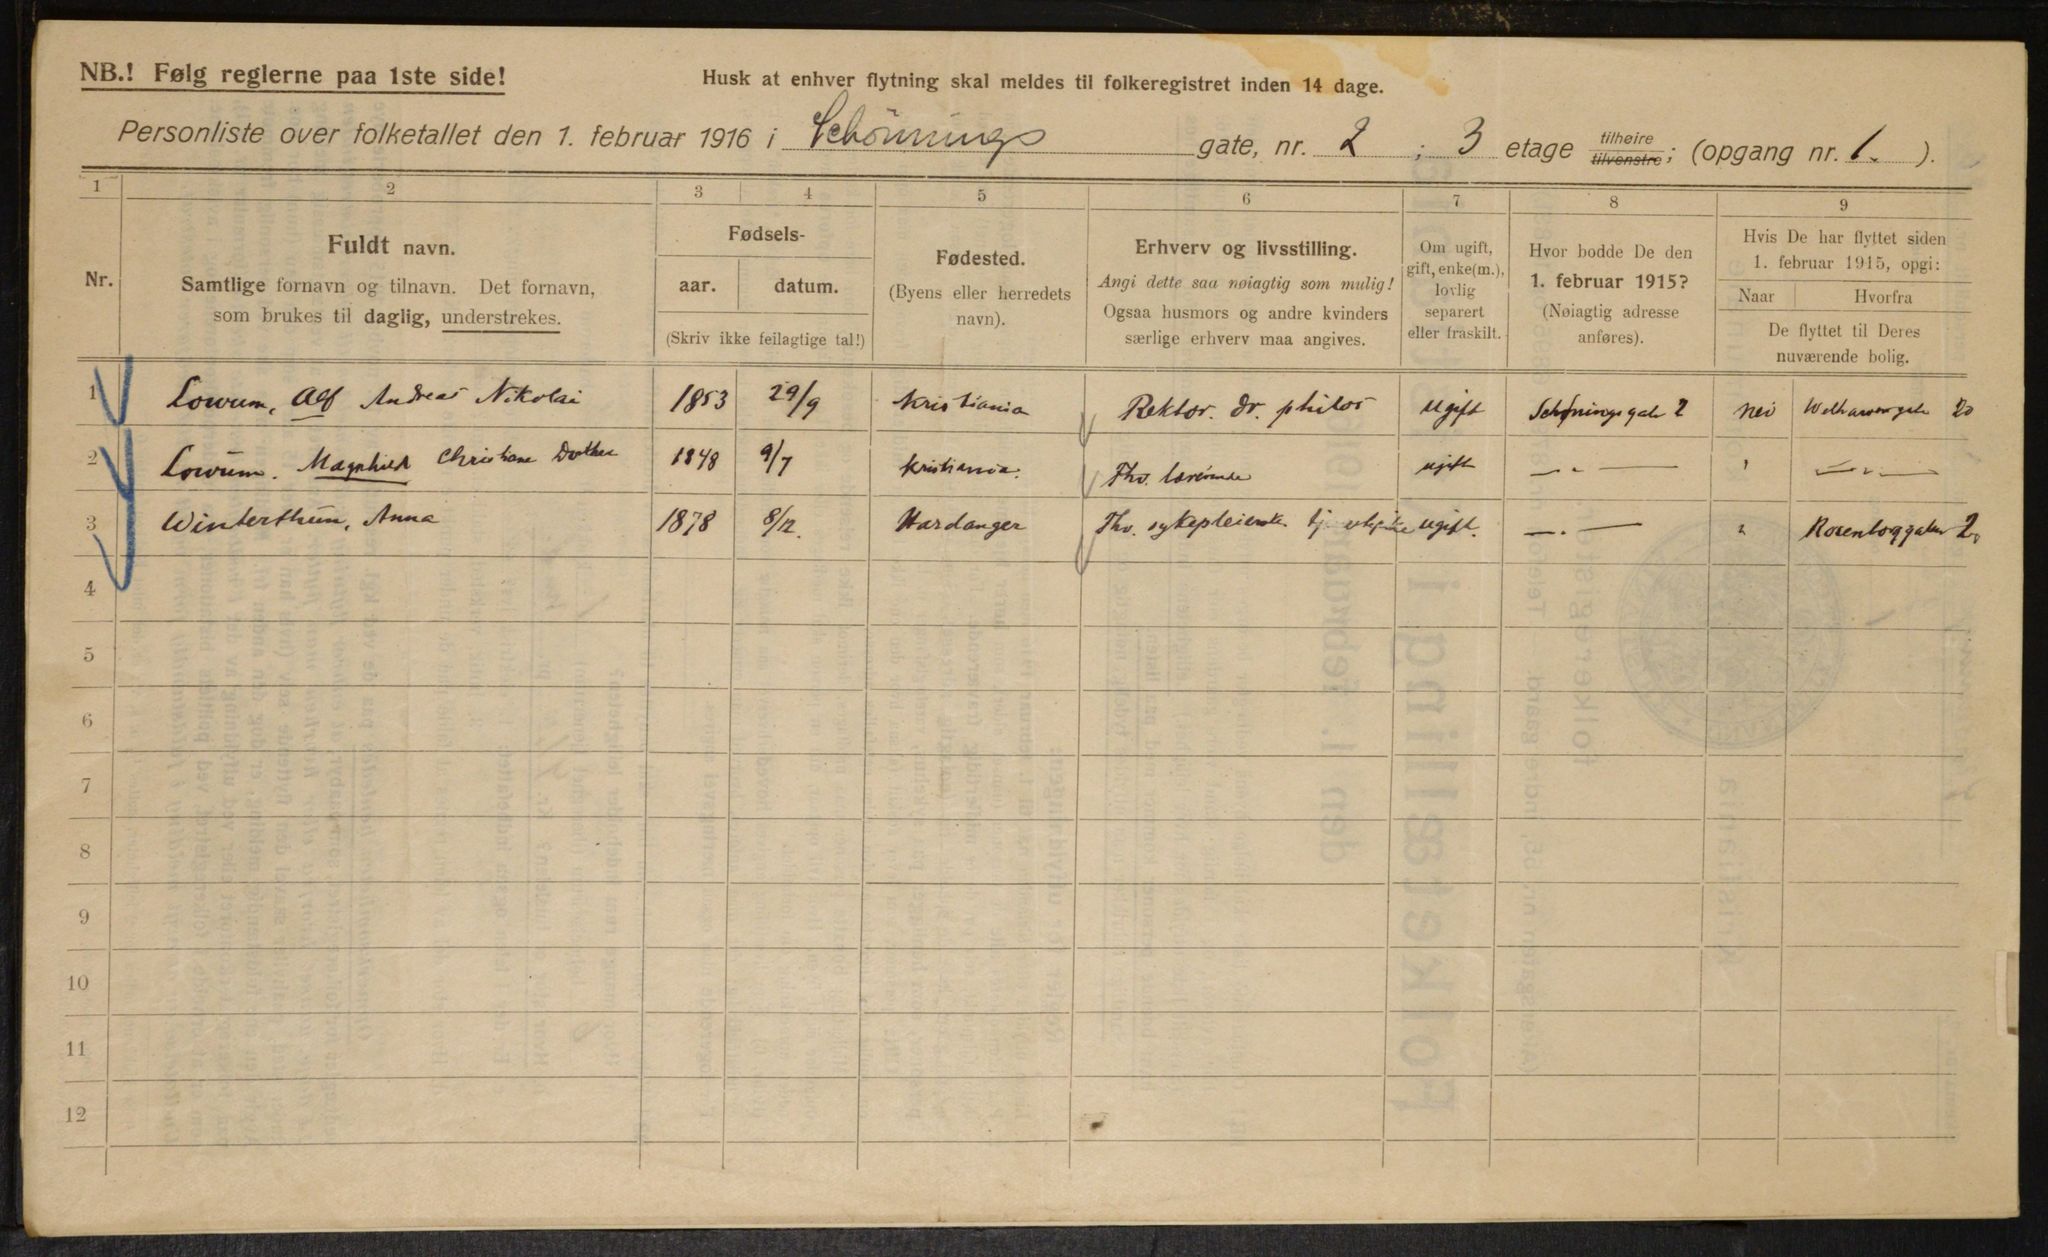 NB.! Følg reglerne paa 1ste side!
Husk at enhver flytning skal meldes til folkeregistret inden 14 dage.
Personliste over folketallet den 1. februar 1916 i Schønnings gate, nr. 2 ; 3 etage tilheire tilvenstre; (opgang nr. 1. ).
1 2 3 4 5 6 7 8 9
Nr.
Fuldt navn.
Samtlige fornavn og tilnavn. Det fornavn,
som brukes til daglig, understrekes.
Fødsels-
aar. datum.
(Skriv ikke feilagtige tal!)
Fødested.
(Byens eller herredets
navn).
Erhverv og livsstilling.
Angi dette saa nøiagtig som mulig!
Ogsaa husmors og andre kvinders
særlige erhverv maa angives.
Om ugift,
gift, enke(m.),
lovlig
separert
eller fraskilt.
Hvor bodde De den
1. februar 1915?
(Nøiagtig adresse
anføres).
Hvis De har flyttet siden
1. februar 1915, opgi:
Naar Hvorfra
De flyttet til Deres
nuværende bolig.
1 Lowum, Alf Andreas Nikolai 1853 29/9 Kristiania Rektor. dr. philos ugift Schøningsgate 2 nei 20
2 Lowum. Magnhild Christiane Dorthea 1848 9/7 Kristiania. Fhv. lærerinde ugift — " — — " —
3 Winterthun, Anna 1878 8/12. Hardanger Fhv. sykepleierske ugift. — " — " 2
4
5
6
7
8
9
10
11
12